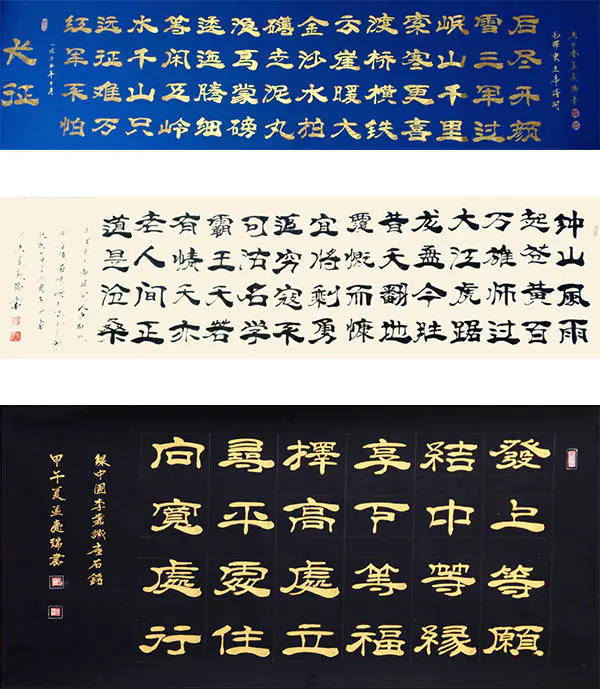 长征
一九三五年十月
红军不怕
远征难万
水千山只
等闲五岭
逶迤腾细
浪乌蒙磅
礴走泥丸
金沙水拍
云崖暖大
渡桥横铁
索寒更喜
岷山千里
雪三军过
后尽开颜
毛泽东主席诗词
钟山风雨
起苍黄百
万雄师过
大江虎踞
龙盘今胜
昔天翻地
覆慨而慷
宜将剩勇
追穷寇不
可沽名学
霸王天若
有情天亦
老人间正
道是沧桑
發上等願
結中等緣
享下等福
擇高處立
尋平處住
向寬處行
録中國李嘉誠座右銘
甲午夏孟慶瑞書